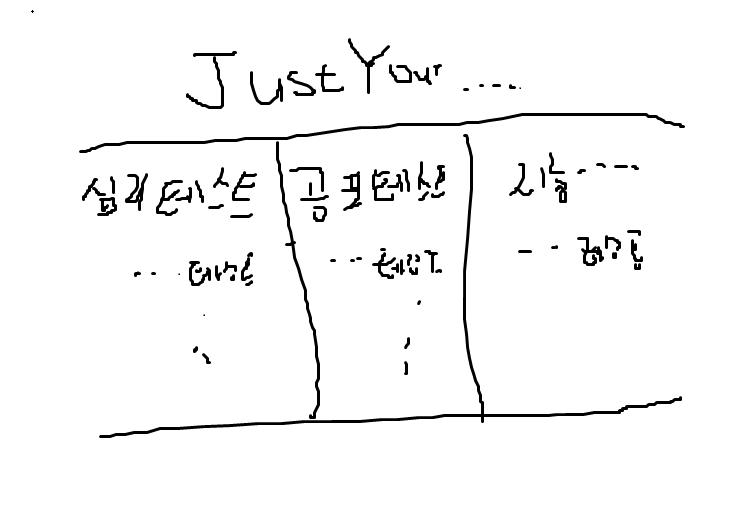 Just Your ....
심리테스트 공포테스트 지능....
... 테스트 ... 테스트 ... 테스트